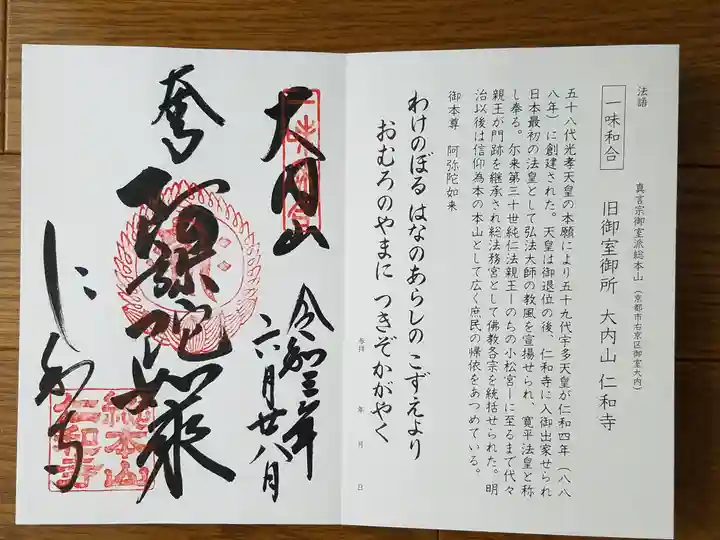 法語
一味和合
真言宗御室派総本山（京都市右京区御室大内）
旧御室御所 大内山 仁和寺
五十八代光孝天皇の本願により五十九代宇多天皇が仁和四年（八八
八年）に創建された。天皇は御退位の後、仁和寺に入御出家せられ
日本最初の法皇として弘法大師の教風を宣揚せられ、寛平法皇と称
し奉る。尓来第三十世純仁法親王ーのちの小松宮ーに至るまで代々
親王が門跡を継承され総法務宮として佛教各宗を統括せられた。明
治以後は信仰為本の本山として広く庶民の帰依をあつめている。
御本尊 阿弥陀如来
わけのぼる はなのあらしの こずえより
おむろのやまに つきぞかがやく
参拝 年 月 日
一味和合
大内山
令和三年
六月廿八日
奉
阿弥陀如来
にわなじ
総本山
仁和寺